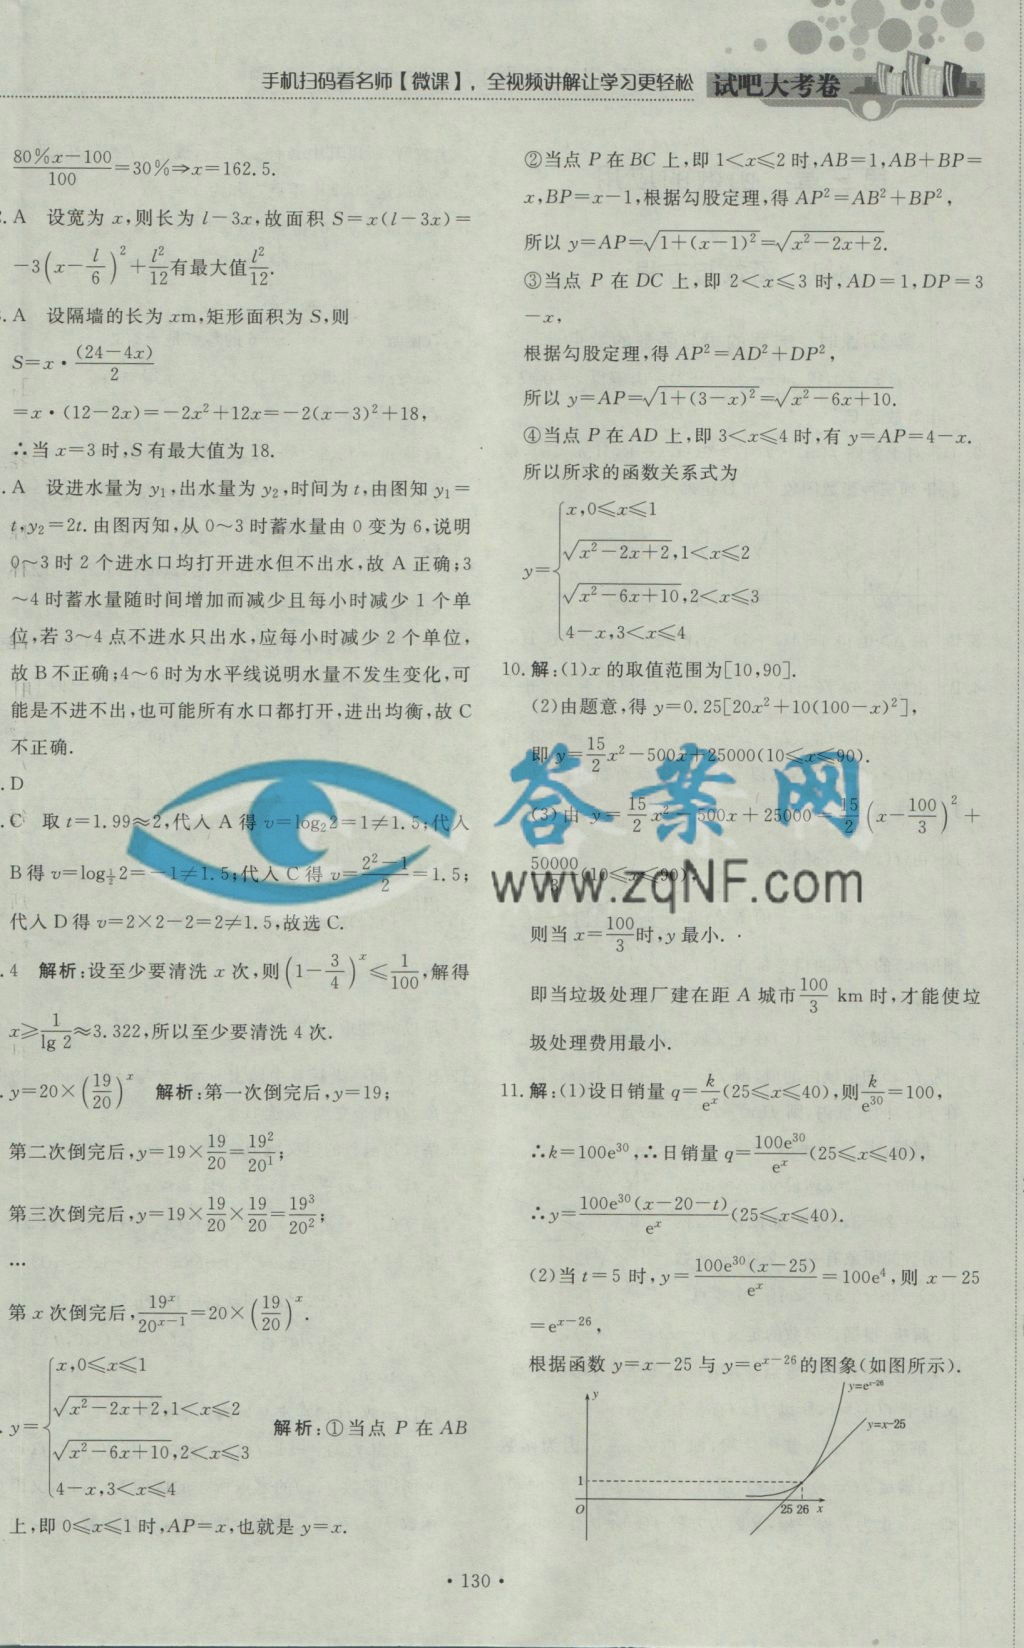 手机扫码看名师【微课】，全视频讲解让学习更轻松
试吧大考卷
(80%x-100)/100=30%⇒x=162.5.
A 设宽为 x,则长为 l-3x,故面积 S=x(l-3x)=
-3(x-l/6)²+l²/12有最大值l²/12.
A 设隔墙的长为 xm,矩形面积为 S,则
S=x·(24-4x)/2
=x·(12-2x)=-2x²+12x=-2(x-3)²+18,
∴当 x=3 时,S 有最大值为 18.
A 设进水量为 y₁,出水量为 y₂,时间为 t,由图知 y₁=
t,y₂=2t.由图丙知,从 0~3 时蓄水量由 0 变为 6,说明
0~3 时 2 个进水口均打开进水但不出水,故 A 正确;3
~4 时蓄水量随时间增加而减少且每小时减少 1 个单
位,若 3~4 点不进水只出水,应每小时减少 2 个单位,
故 B 不正确;4~6 时为水平线说明水量不发生变化,可
能是不进不出,也可能所有水口都打开,进出均衡,故 C
不正确.
D
C 取 t=1.99≈2,代入 A 得 v=log₂2=1≠1.5;代入
B 得 v=log½2=-1≠1.5;代入 C 得 v=(2²-1)/2=1.5;
代入 D 得 v=2×2-2=2≠1.5,故选 C.
4 解析:设至少要清洗 x 次,则(1-3/4)ˣ≤1/100,解得
x≥1/lg 2≈3.322,所以至少要清洗 4 次.
y=20×(19/20)ˣ 解析:第一次倒完后,y=19;
第二次倒完后,y=19×19/20=19²/20¹;
第三次倒完后,y=19×19/20×19/20=19³/20²;
…
第 x 次倒完后,19ˣ/20ˣ⁻¹=20×(19/20)ˣ.
x,0≤x≤1
√(x²-2x+2),1<x≤2
y= 解析:①当点 P 在 AB
√(x²-6x+10),2<x≤3
4-x,3<x≤4
上,即 0≤x≤1 时,AP=x,也就是 y=x.
②当点 P 在 BC 上,即 1<x≤2 时,AB=1,AB+BP=
x,BP=x-1,根据勾股定理,得 AP²=AB²+BP²,
所以 y=AP=√(1+(x-1)²)=√(x²-2x+2).
③当点 P 在 DC 上,即 2<x≤3 时,AD=1,DP=3
-x,
根据勾股定理,得 AP²=AD²+DP²,
所以 y=AP=√(1+(3-x)²)=√(x²-6x+10).
④当点 P 在 AD 上,即 3<x≤4 时,有 y=AP=4-x.
所以所求的函数关系式为
x,0≤x≤1
√(x²-2x+2),1<x≤2
y=
√(x²-6x+10),2<x≤3
4-x,3<x≤4
10.解:(1)x 的取值范围为[10,90].
(2)由题意,得 y=0.25[20x²+10(100-x)²],
即 y=15/2x²-500x+25000(10≤x≤90).
(3)由 y=15/2x²-500x+25000=15/2(x-100/3)²+
50000/3(10≤x≤90),
则当 x=100/3时,y 最小.
即当垃圾处理厂建在距 A 城市100/3 km 时,才能使垃
圾处理费用最小.
11.解:(1)设日销量 q=k/eˣ(25≤x≤40),则k/e³⁰=100,
∴k=100e³⁰,∴日销量 q=100e³⁰/eˣ(25≤x≤40),
∴y=100e³⁰(x-20-t)/eˣ(25≤x≤40).
(2)当 t=5 时,y=100e³⁰(x-25)/eˣ=100e⁴,则 x-25
=eˣ⁻²⁶,
根据函数 y=x-25 与 y=eˣ⁻²⁶的图象(如图所示).
y
y=eˣ⁻²⁶
y=x-25
1
O
25 26 x
答案网
www.zqNF.com
·130·